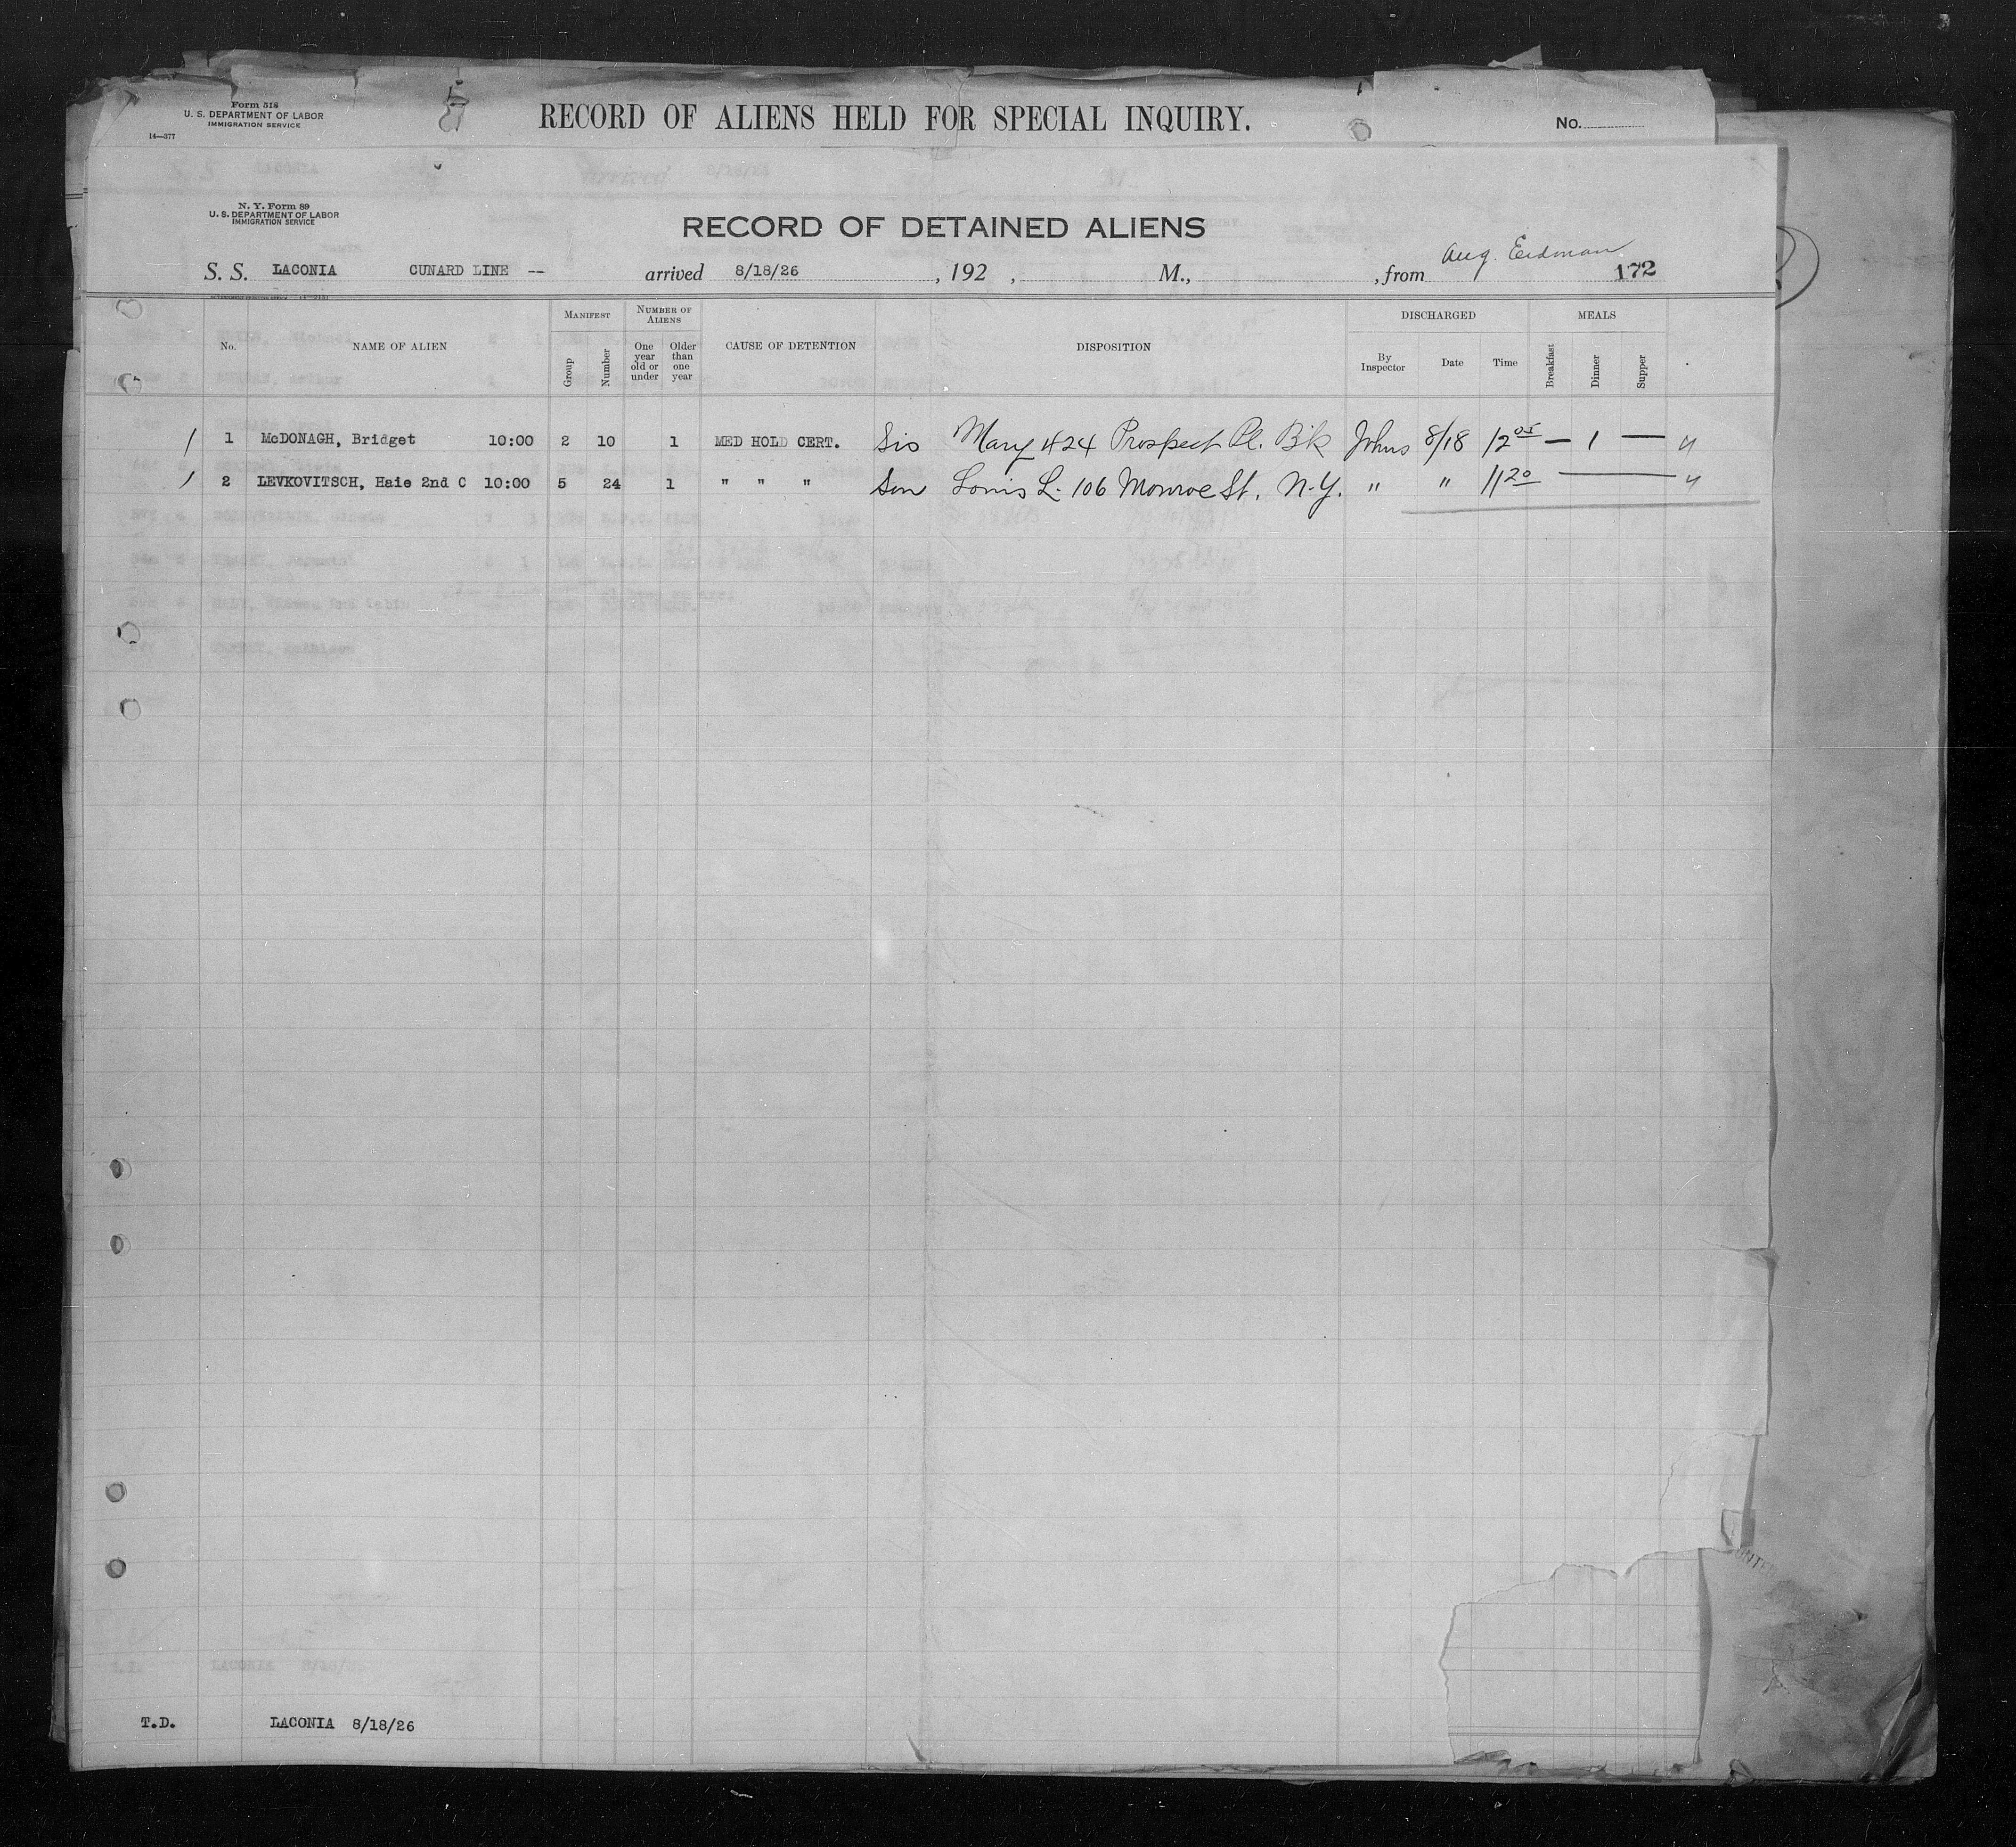 Form 518
U. S. DEPARTMENT OF LABOR
IMMIGRATION SERVICE
14—377
RECORD OF ALIENS HELD FOR SPECIAL INQUIRY.
No.
N. Y. Form 89
U. S. DEPARTMENT OF LABOR
IMMIGRATION SERVICE
RECORD OF DETAINED ALIENS
Aug. Erdman
S. S. LACONIA CUNARD LINE -- arrived 8/18/26 , 192 , M., , from 172
MANIFEST NUMBER OF ALIENS DISCHARGED MEALS
No. NAME OF ALIEN Group Number One year old or under Older than one year CAUSE OF DETENTION DISPOSITION By Inspector Date Time Breakfast Dinner Supper
/ 1 McDONAGH, Bridget 10:00 2 10 1 MED HOLD CERT. Sis Mary 424 Prospect Pl. Bk Johns 8/18 12 05 — 1 — "
/ 2 LEVKOVITSCH, Haie 2nd C 10:00 5 24 1 " " " Son Louis L. 106 Monroe St. N.Y. " " 11 20 — "
T.D. LACONIA 8/18/26